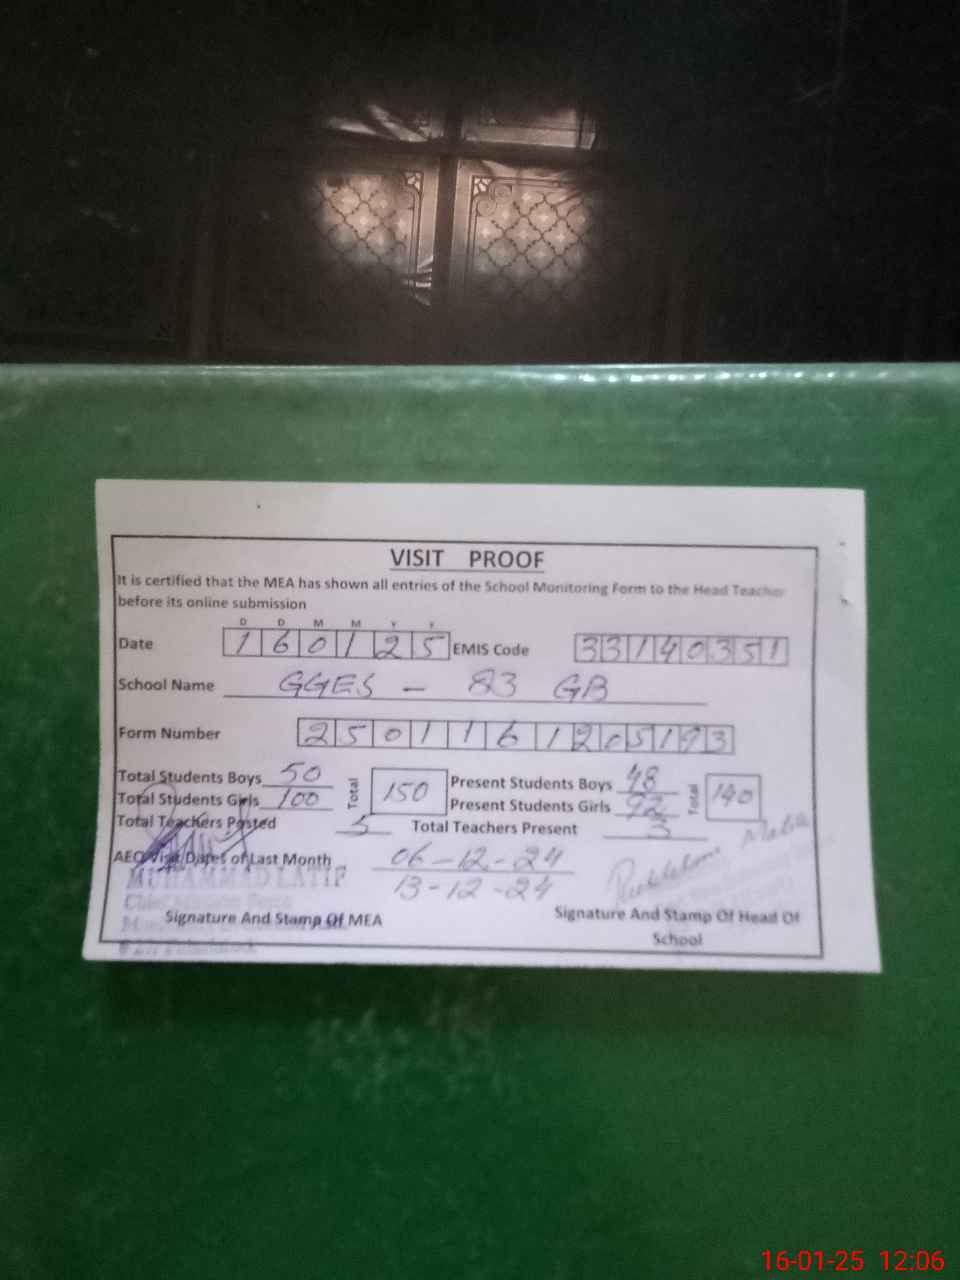 VISIT PROOF
It is certified that the MEA has shown all entries of the School Monitoring Form to the Head Teacher
before its online submission
D D M M Y Y
Date 160125 EMIS Code 33140351
School Name GGES - 83 GB
Form Number
Total Students Boys 50 Total 150 Present Students Boys 48 Total 140
Total Students Girls 100 Present Students Girls 92
Total Teachers Posted 5 Total Teachers Present 3
AEO Visit Dates of Last Month 06-12-24
13-12-24
MUHAMMAD LATIF
Signature And Stamp Of MEA
Signature And Stamp Of Head Of
School
16-01-25 12:06